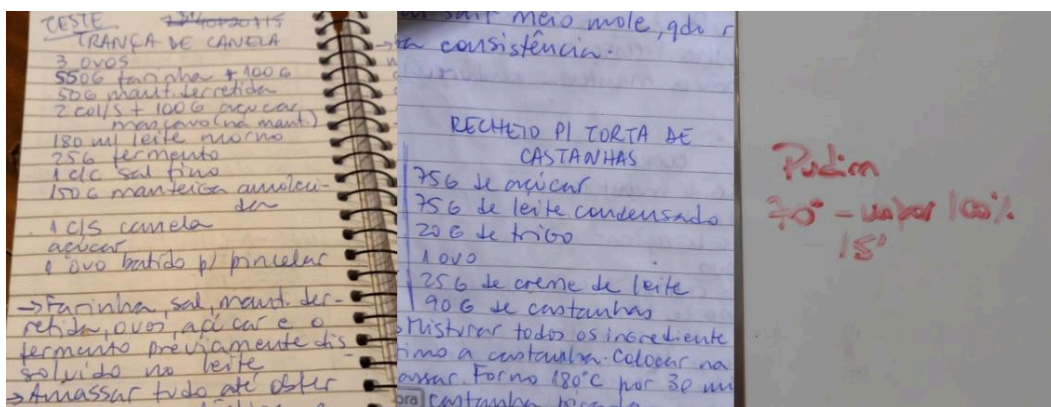 TESTE
TRANÇA DE CANELA
3 ovos
550G farinha + 100G
50G mant. derretida
2 col/s + 100G açúcar
mascavo (na mant.)
180 ml leite morno
25G fermento
1 c/c sal fino
150G manteiga amoleci-
da
1 c/s canela
açúcar
1 ovo batido p/ pincelar
→ Farinha, sal, mant. der-
retida, ovos, açúcar e o
fermento previamente dis
solvido no leite
→ Amassar tudo até obter
sair meio mole, qdo r
ta consistência.
RECHEIO P/ TORTA DE
CASTANHAS
75G de açúcar
75G de leite condensado
20G de trigo
1 ovo
25G de creme de leite
90G de castanhas
Misturar todos os ingrediente
timo a castanha. Colocar na
assar. Forno 180°C por 30 mi
castanha picada
Pudim
70° - vapor 100%
15'